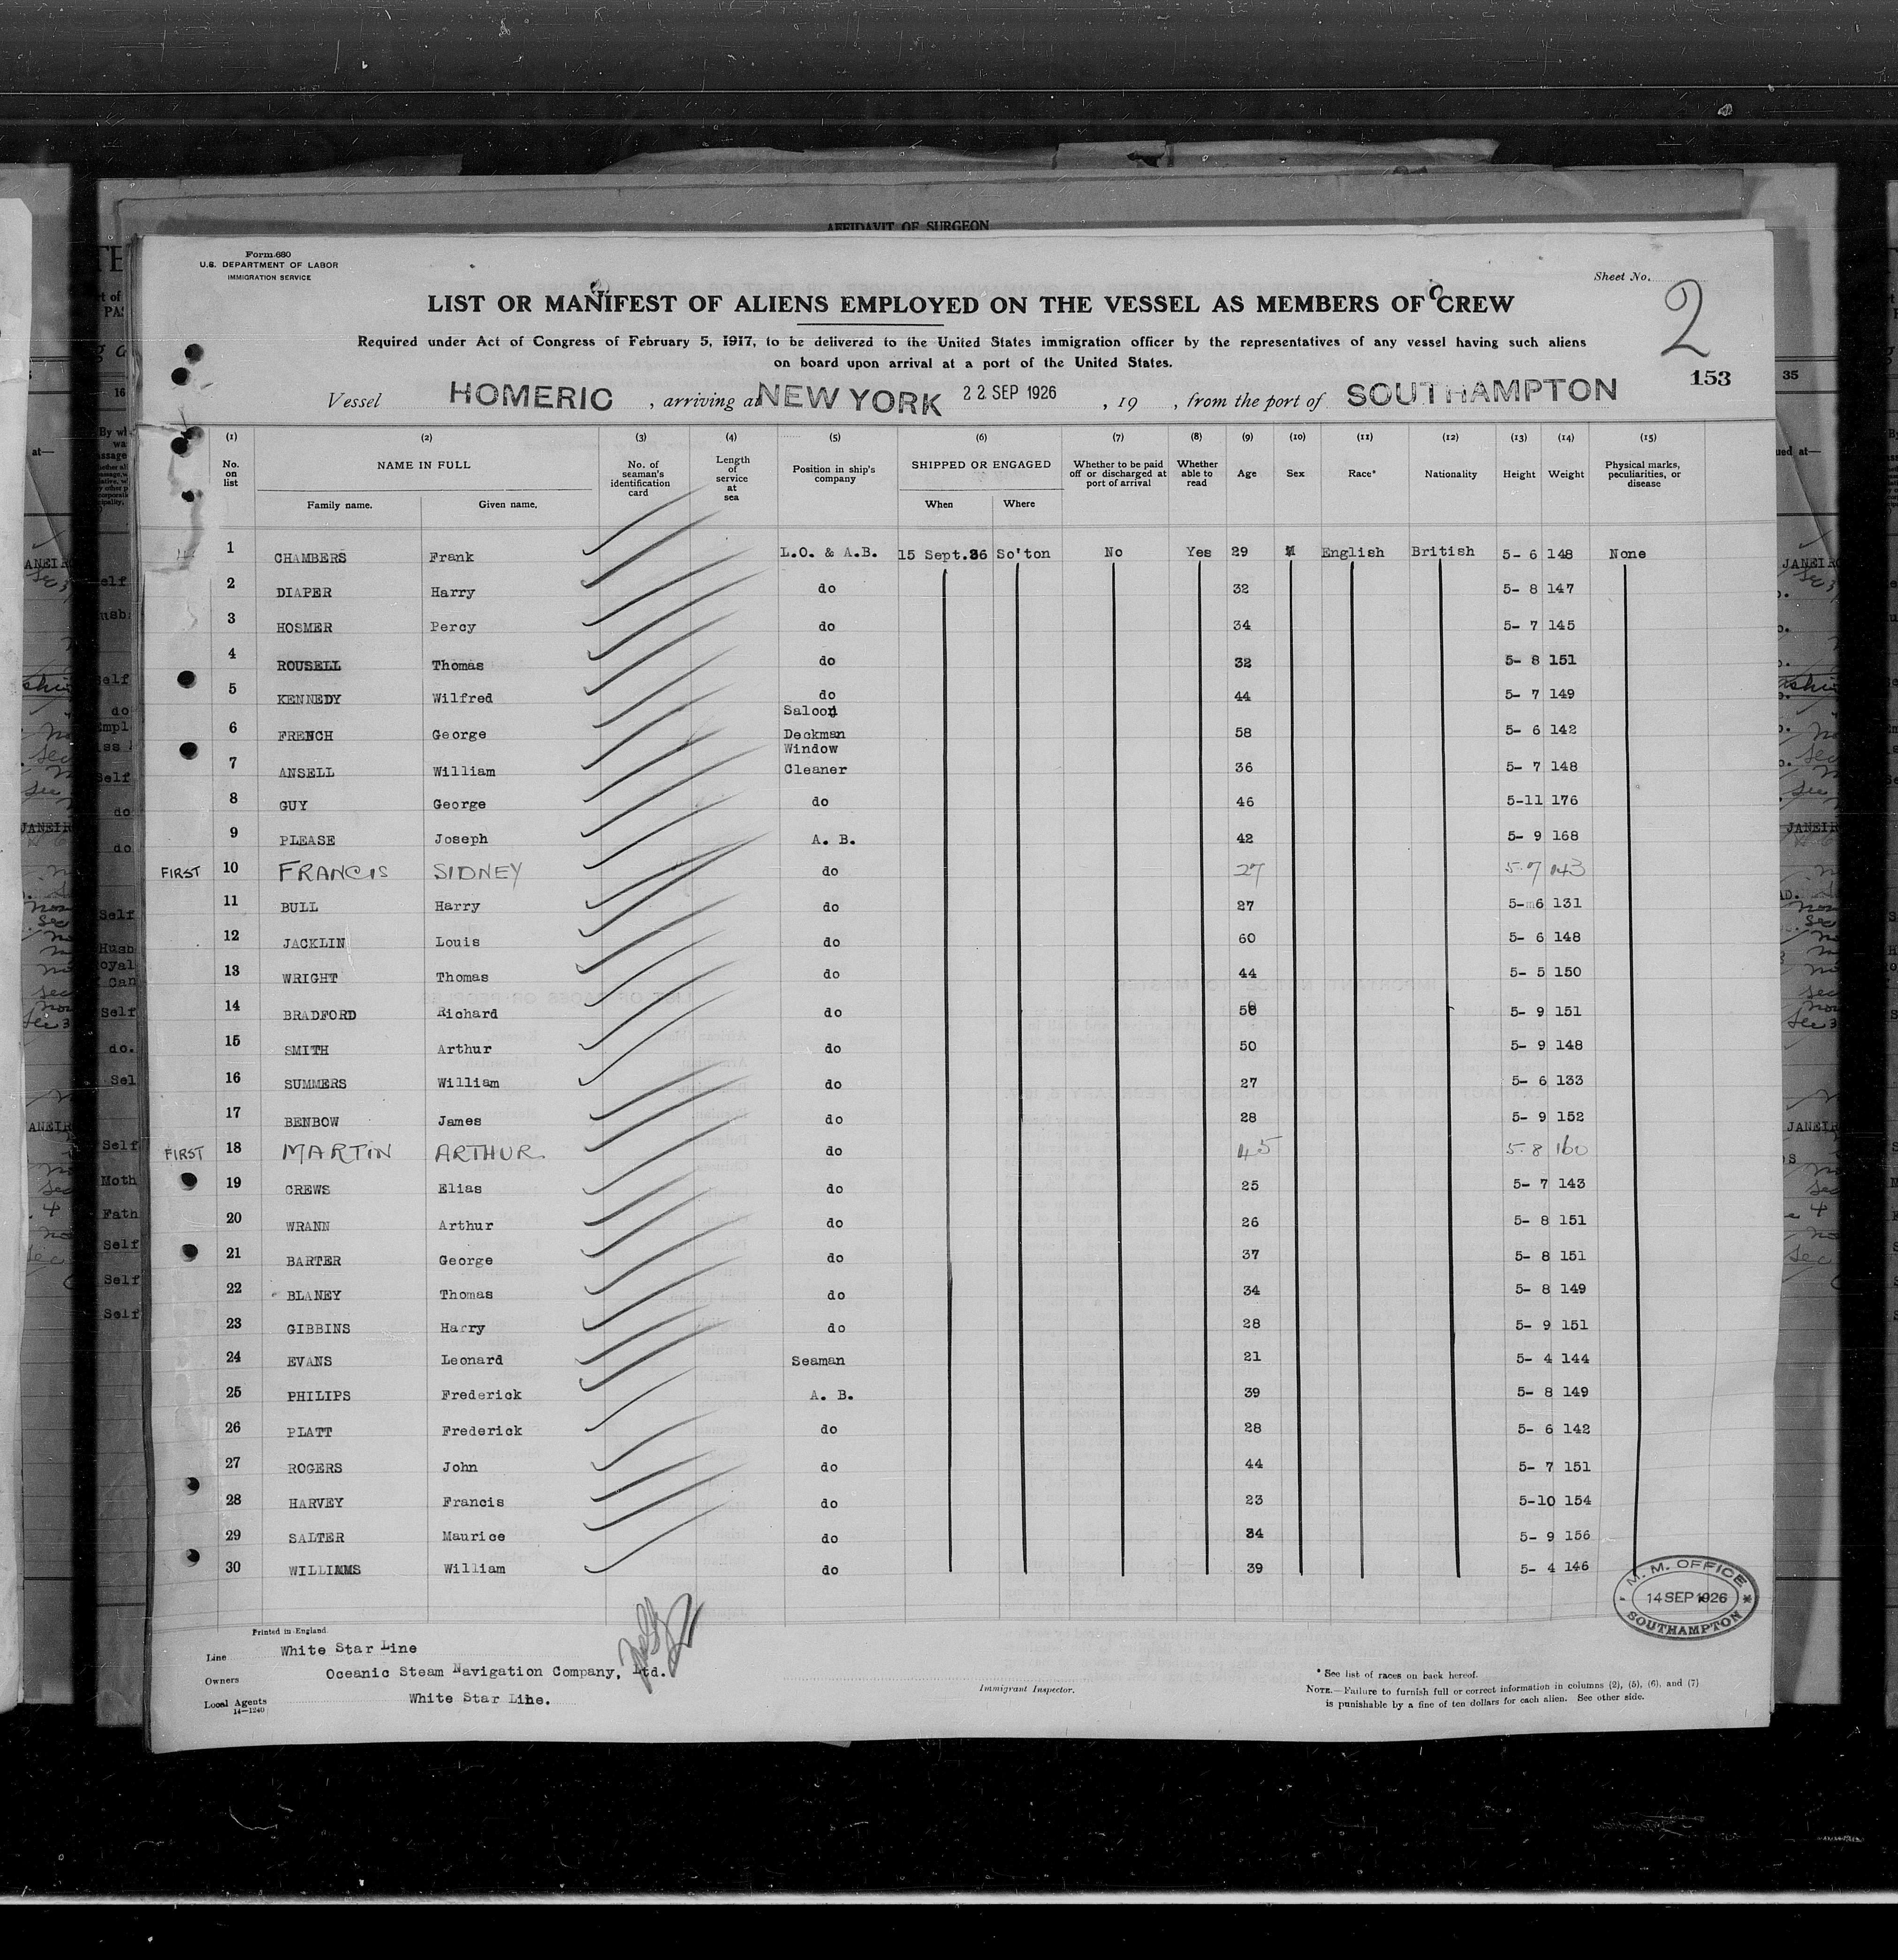 AFFIDAVIT OF SURGEON
Form 680
U.S. DEPARTMENT OF LABOR
IMMIGRATION SERVICE
Sheet No.
2
LIST OR MANIFEST OF ALIENS EMPLOYED ON THE VESSEL AS MEMBERS OF CREW
Required under Act of Congress of February 5, 1917, to be delivered to the United States immigration officer by the representatives of any vessel having such aliens
on board upon arrival at a port of the United States.
153
Vessel HOMERIC , arriving at NEW YORK 22 SEP 1926 , 19 , from the port of SOUTHAMPTON
(1) (2) (3) (4) (5) (6) (7) (8) (9) (10) (11) (12) (13) (14) (15)
No. on list NAME IN FULL No. of seaman's identification card Length of service at sea Position in ship's company SHIPPED OR ENGAGED Whether to be paid off or discharged at port of arrival Whether able to read Age Sex Race* Nationality Height Weight Physical marks, peculiarities, or disease
Family name. Given name. When Where
1 CHAMBERS Frank L.O. & A.B. 15 Sept.26 So'ton No Yes 29 M English British 5- 6 148 None
2 DIAPER Harry do 32 5- 8 147
3 HOSMER Percy do 34 5- 7 145
4 ROUSELL Thomas do 32 5- 8 151
5 KENNEDY Wilfred do 44 5- 7 149
6 FRENCH George Saloon Deckman 58 5- 6 142
7 ANSELL William Window Cleaner 36 5- 7 148
8 GUY George do 46 5-11 176
9 PLEASE Joseph A. B. 42 5- 9 168
FIRST 10 FRANCIS SIDNEY do 27 5-7 143
11 BULL Harry do 27 5- 6 131
12 JACKLIN Louis do 60 5- 6 148
13 WRIGHT Thomas do 44 5- 5 150
14 BRADFORD Richard do 5- 9 151
15 SMITH Arthur do 50 5- 9 148
16 SUMMERS William do 27 5- 6 133
17 BENBOW James do 28 5- 9 152
FIRST 18 MARTIN ARTHUR do 45 5-8 160
19 CREWS Elias do 25 5- 7 143
20 WRANN Arthur do 26 5- 8 151
21 BARTER George do 37 5- 8 151
22 BLANEY Thomas do 34 5- 8 149
23 GIBBINS Harry do 28 5- 9 151
24 EVANS Leonard Seaman 21 5- 4 144
25 PHILIPS Frederick A. B. 39 5- 8 149
26 PLATT Frederick do 28 5- 6 142
27 ROGERS John do 44 5- 7 151
28 HARVEY Francis do 23 5-10 154
29 SALTER Maurice do 34 5- 9 156
30 WILLIAMS William do 39 5- 4 146
M. M. OFFICE
14 SEP 1926
SOUTHAMPTON
Printed in England.
Line White Star Line
Owners Oceanic Steam Navigation Company, Ltd.
Local Agents White Star Line.
14—1240
Immigrant Inspector.
* See list of races on back hereof.
NOTE.—Failure to furnish full or correct information in columns (2), (5), (6), and (7)
is punishable by a fine of ten dollars for each alien. See other side.